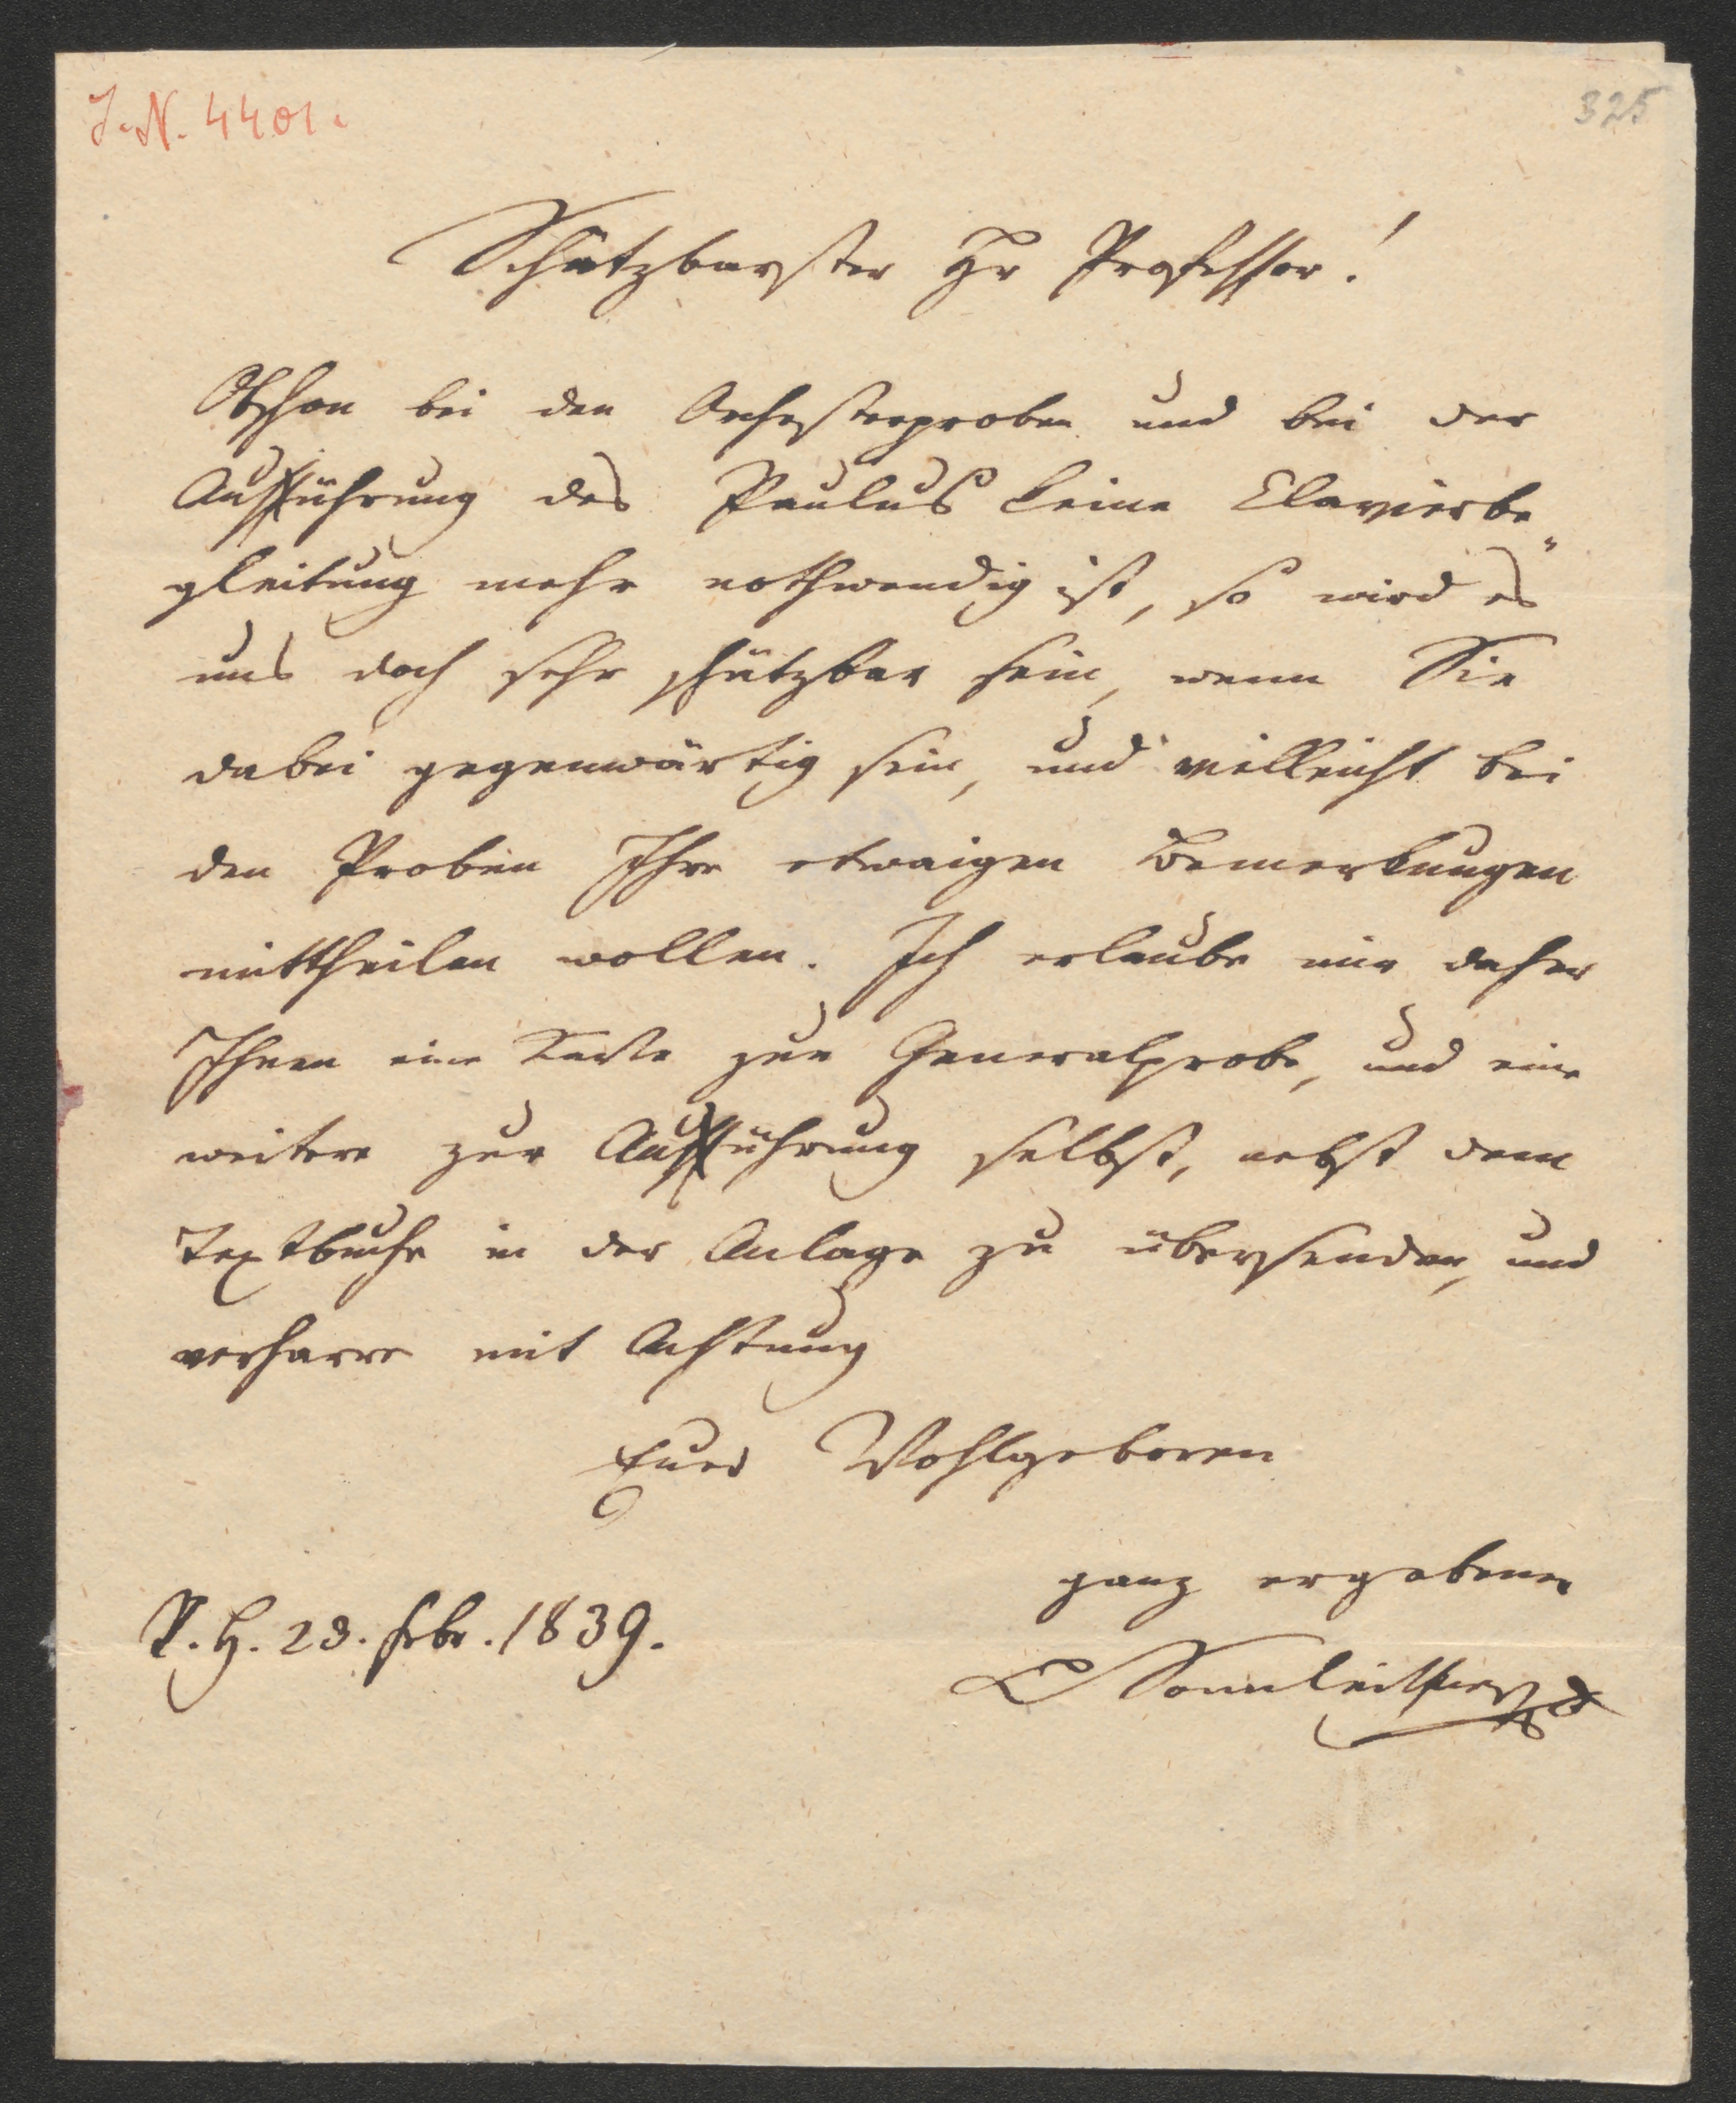 J. N. 4401.
325
Schätzbarster Hr Professor!
Obschon bei den Orchesterproben und bei der
Aufführung des Paulus keine Clavierbe„
gleitung mehr nothwendig ist, so wird es
uns doch sehr schätzbar sein, wenn Sie
dabei gegenwärtig sein, und vielleicht bei
den Proben Ihre etwaigen Bemerkungen
mittheilen wollen. Ich erlaube mir daher
Ihnen eine Karte zur Generalprobe, und eine
weitere zur Aufführung selbst, nebst dem
Textbuche in der Anlage zu übersenden, und
verharre mit Achtung
Euer Wohlgeboren
ganz ergebener
V. H. 23. Febr. 1839.
L Sonnleithner